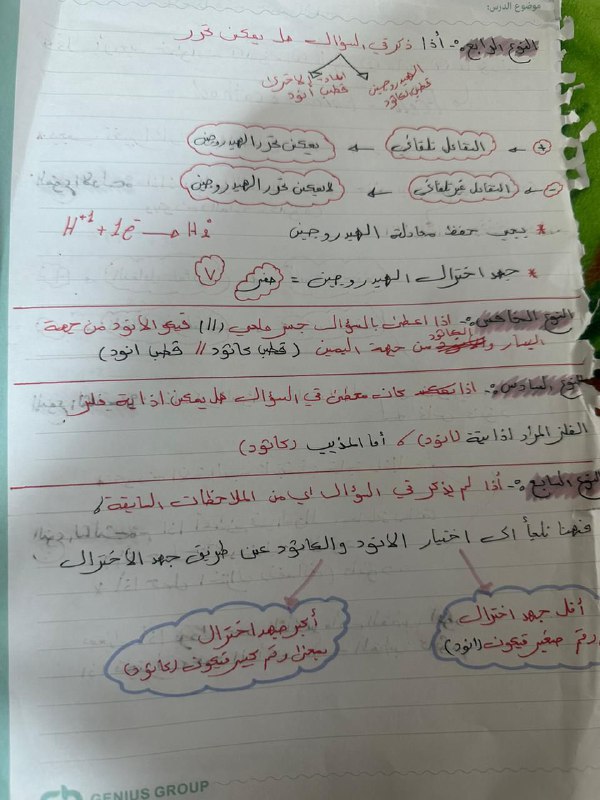 موضوع الدرس:
النوع الرابع :- أذا ذكر في السؤال هل يمكن تحرر
الهيدروجين المادة الاخرى
قطب كاثود قطب أنود
+ ← التفاعل تلقائي ← يمكن تحرر الهيدروجين
- ← التفاعل غير تلقائي ← لا يمكن تحرر الهيدروجين
* يجب حفظ معادلة الهيدروجين H+1 + 1e- → H
* جهد اختزال الهيدروجين = صفر V
النوع الخامس :- اذا اعطى بالسؤال جسر ملحي (//) فيكون الأنود من جهة
اليسار والكاثود من جهة اليمين (قطب كاثود // قطب انود)
النوع السادس :- اذا كان معطى في السؤال هل يمكن اذابة فلز
الفلز المراد اذابتة (انود) أما المذيب (كاثود)
النوع السابع :- أذا لم يذكر في السؤال اي من الملاحظات السابقة
فهنا نلجأ الى اختيار الانود والكاثود عن طريق جهد الأختزال
أقل جهد اختزال
رقم صغير فيكون (انود)
أكبر جهد اختزال
بمعنى رقم كبير فيكون (كاثود)
GENIUS GROUP